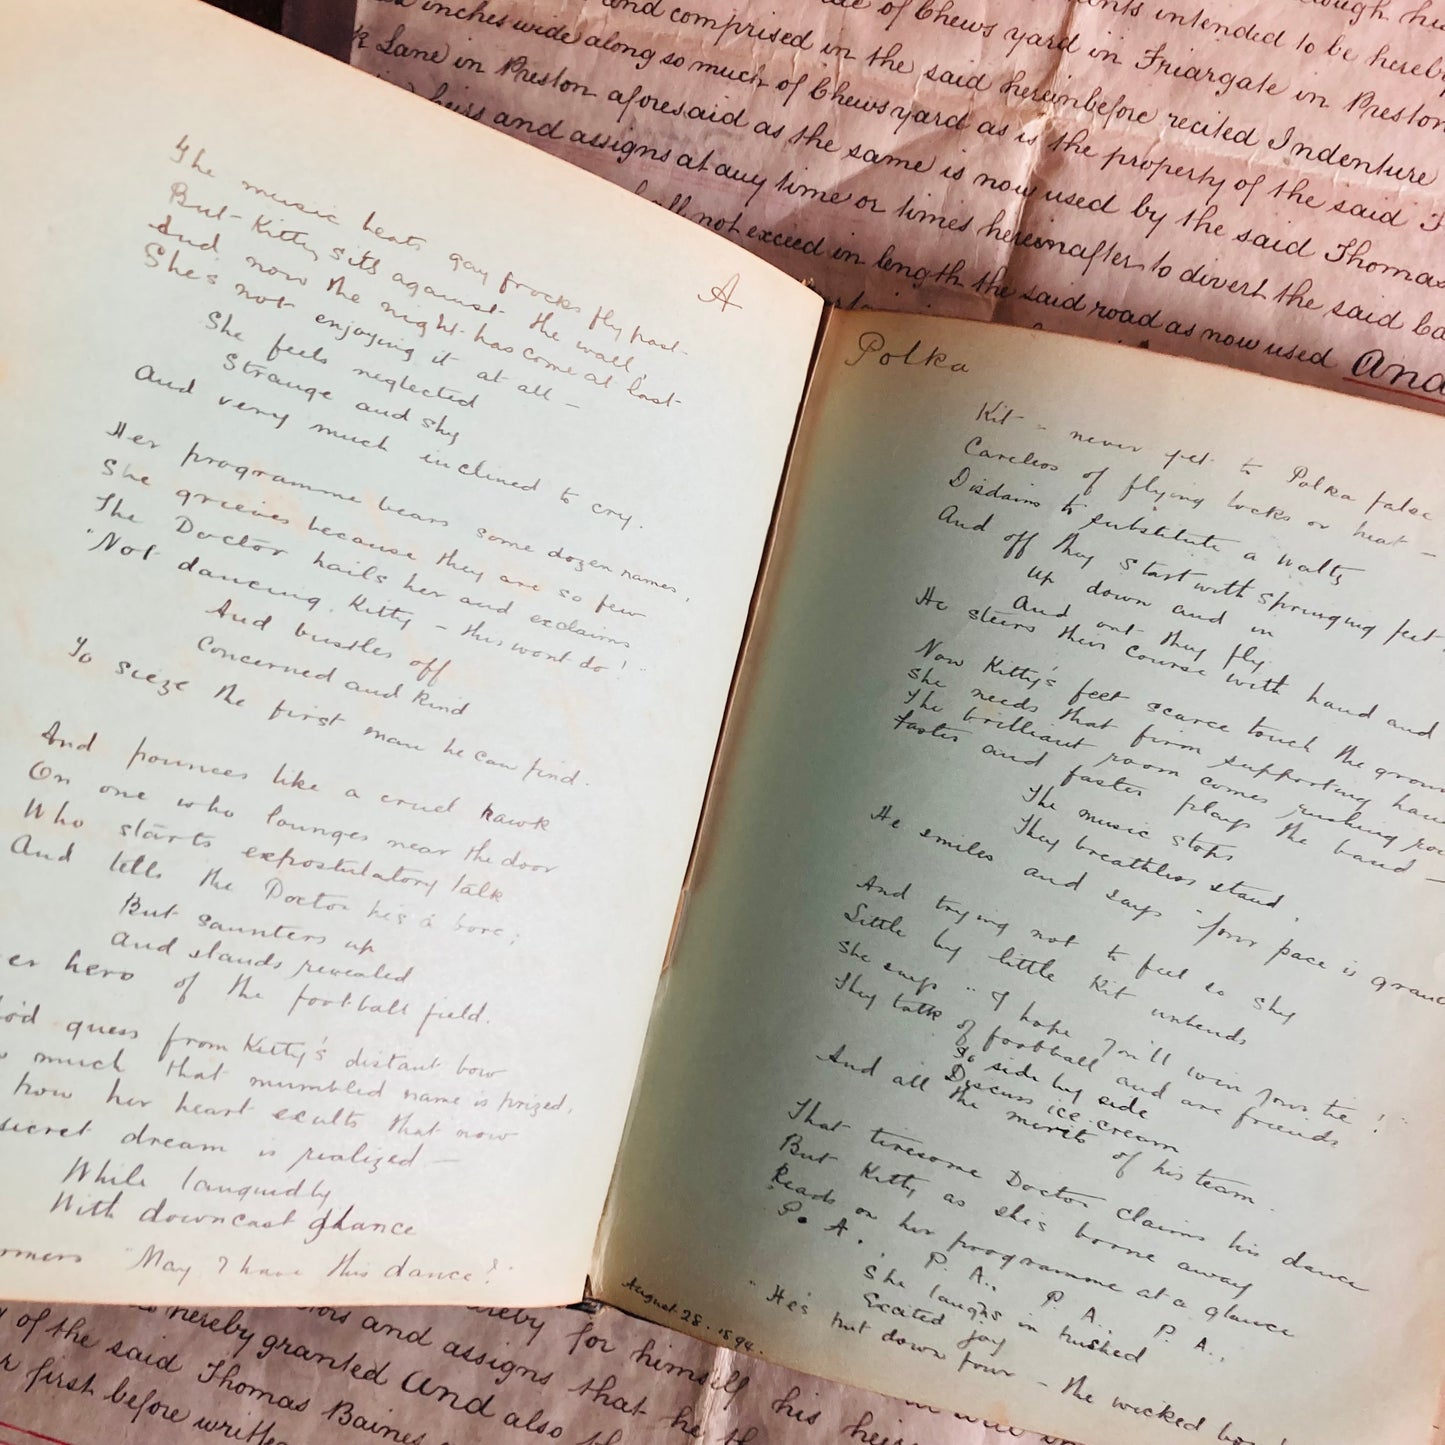 ents intended to be hereby
and comprised in the said hereinbefore recited Indenture
of Chews yard in Friargate in Preston
inches wide along so much of Chews yard as is the property of the said
Lane in Preston aforesaid as the same is now used by the said Thomas
heirs and assigns at any time or times hereinafter to divert the said
all not exceed in length the said road as now used And
A
The music beats gay frocks fly past-
But Kitty sits against the wall,
And now the night has come at last
She's not enjoying it at all -
She feels neglected
Strange and shy
And very much inclined to cry.
Her programme bears some dozen names,
She grieves because they are so few
The Doctor hails her and exclaims
"Not dancing, Kitty - this wont do!"
And bustles off
Concerned and kind
To sieze the first man he can find.
And pounces like a cruel hawk
On one who lounges near the door
Who starts expostulatory talk
And tells the Doctor he's a bore;
But saunters up
And stands revealed
er hero of the football field.
guess from Kitty's distant bow
much that mumbled name is prized,
how her heart exults that now
secret dream is realized -
While languidly
With downcast glance
rmers "May I have this dance?"
Polka
Kit - never yet to Polka false
Careless of flying locks or heat -
Disdains to substitute a waltz
And off they start with springing feet
Up down and in
And out they fly
He steers their course with hand and
Now Kitty's feet scarce touch the groun
She needs that firm supporting han
The brilliant room comes rushing rou
Faster and faster plays the band -
The music stops
They breathless stand,
He smiles and says "your pace is grand
And trying not to feel so shy
Little by little Kit unbends
She says "I hope you'll win your tie!"
They talk of football and are friends
So side by side
Discuss ice cream
And all the merits of his team.
That tiresome Doctor claims his dance
But Kitty as she's borne away
Reads on her programme at a glance
"P. A., P. A., P. A., P. A.,
She laughs in hushed
Excited joy
"He's put down four - the wicked bo
August 28. 1894.
hereby for himself his heir
hereby granted And also
ors and assigns that he
of the said Thomas Baines
first before written